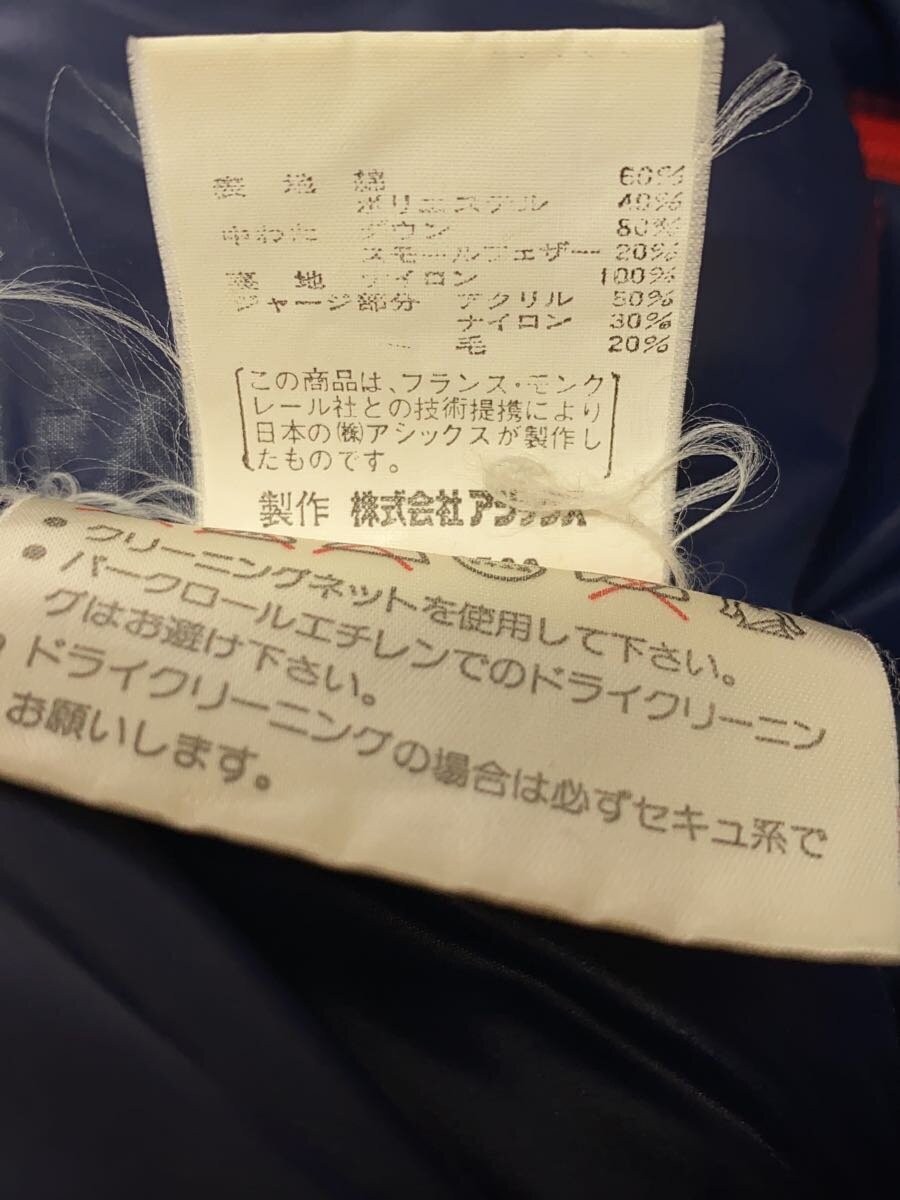 表 地 綿 60%
ポリエステル 40%
中わた ダウン 80%
スモールフェザー 20%
裏 地 ナイロン 100%
ジャージ部分 アクリル 50%
ナイロン 30%
毛 20%
この商品は、フランス・モンク
レール社との技術提携により
日本の(株)アシックスが製作し
たものです。
製作 株式会社アシックス
• クリーニングネットを使用して下さい。
• パークロールエチレンでのドライクリーニン
グはお避け下さい。
ドライクリーニングの場合は必ずセキユ系で
お願いします。